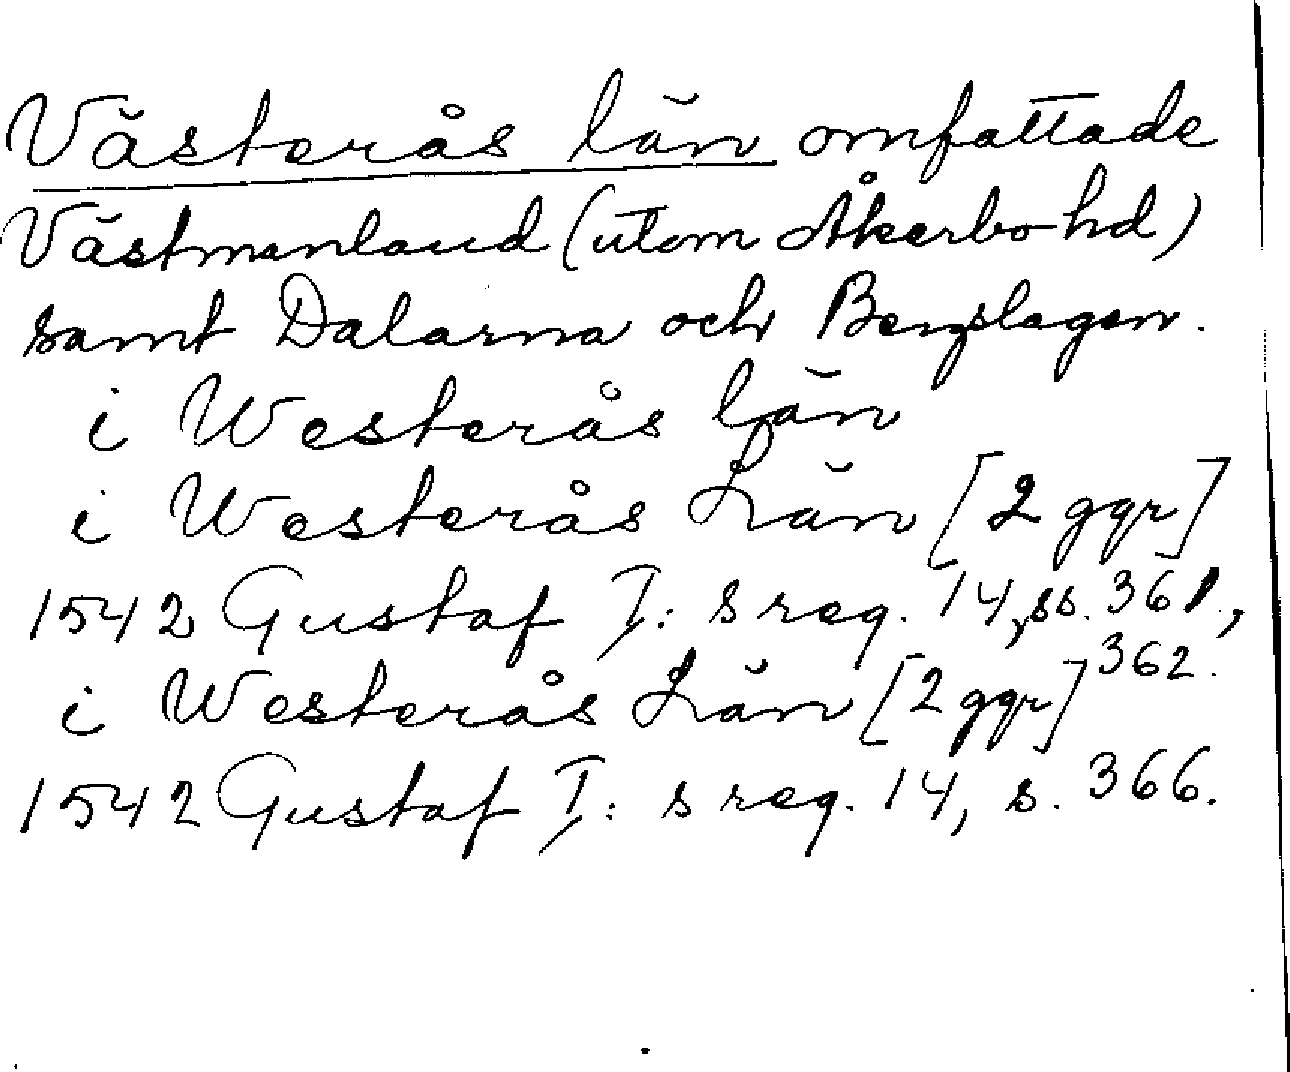 Västerås län omfattade
Västmanland (utom Åkerbo hd)
samt Dalarna och Bergslagen.
i Westerås län
i Westerås Län [2 ggr]
1542 Gustaf I:s reg. 14, ss. 361,
362.
i Westerås Län [2 ggr]
1542 Gustaf I:s reg. 14, s. 366.